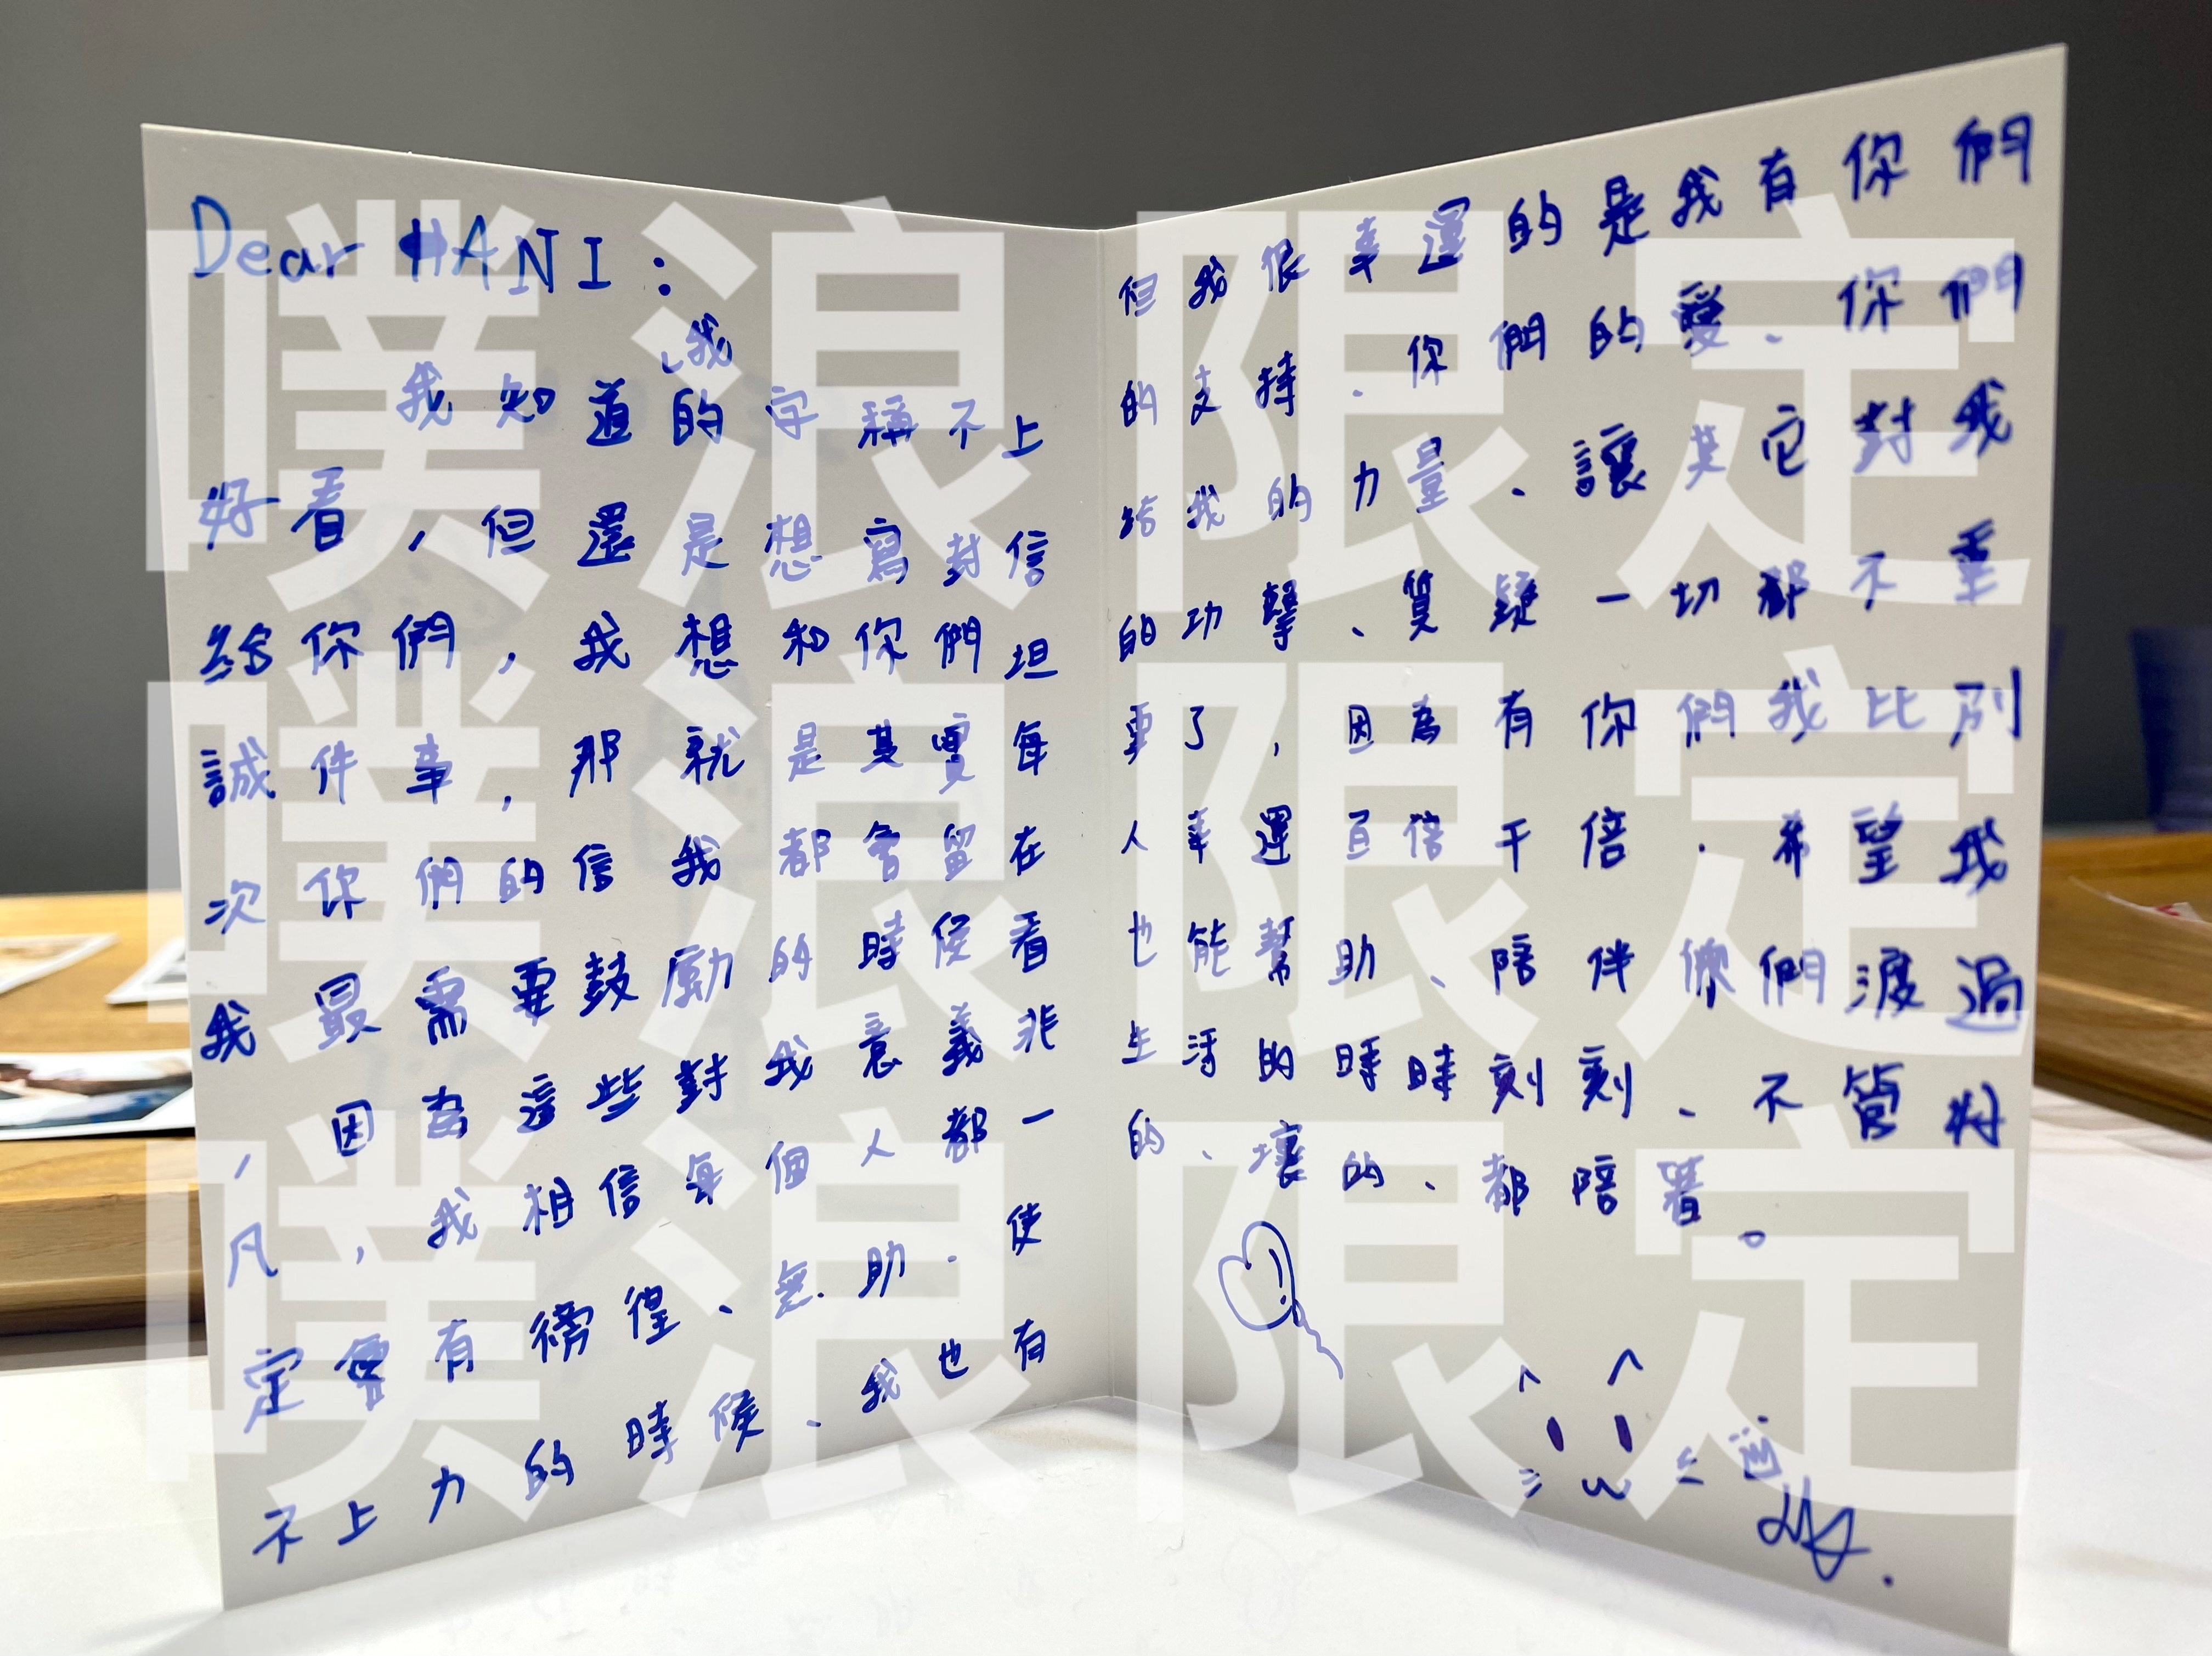 Dear HANI：
我知道我的字稱不上
好看，但還是想寫封信
給你們，我想和你們坦
誠件事，那就是其實每
次你們的信我都會留在
我最需要鼓勵的時侯看
，因為這些對我意義非
凡，我相信每個人都一
定會有徬徨、無助、使
不上力的時候、我也有
但我很幸運的是我有你們
的支持、你們的愛、你們
給我的力量、讓其它對我
的功擊、質疑一切都不重
要了，因為有你們我比別
人幸運百倍千倍．希望我
也能幫助、陪伴你們渡過
生活的時時刻刻、不管好
的、壞的、都陪著。
噗浪限定
噗浪限定
噗浪限定